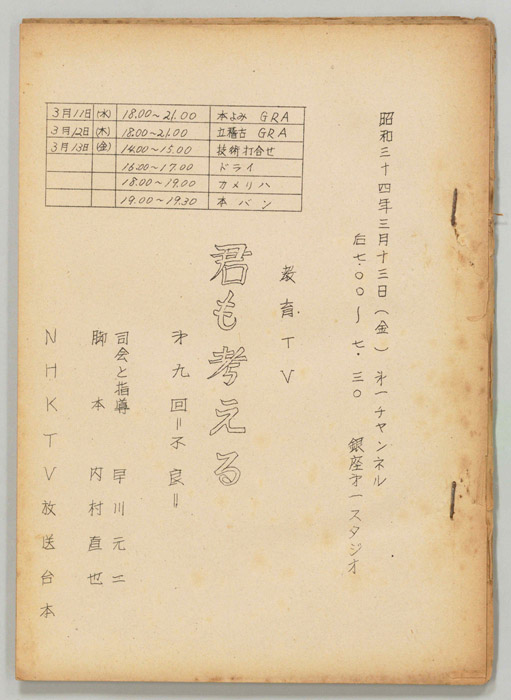 3月11日 (水) 18.00～21.00 本よみ GRA
3月12日 (木) 18.00～21.00 立稽古 GRA
3月13日 (金) 14.00～15.00 技術打合せ
16.00～17.00 ドライ
18.00～19.00 カメリハ
19.00～19.30 本バン
昭和三十四年三月十三日(金) 才一チャンネル
后七.〇〇～七.三〇 銀座才一スタジオ
教育TV
君も考える
才九回=不良=
司会と指導 早川元二
脚本 内村直也
NHKTV放送台本